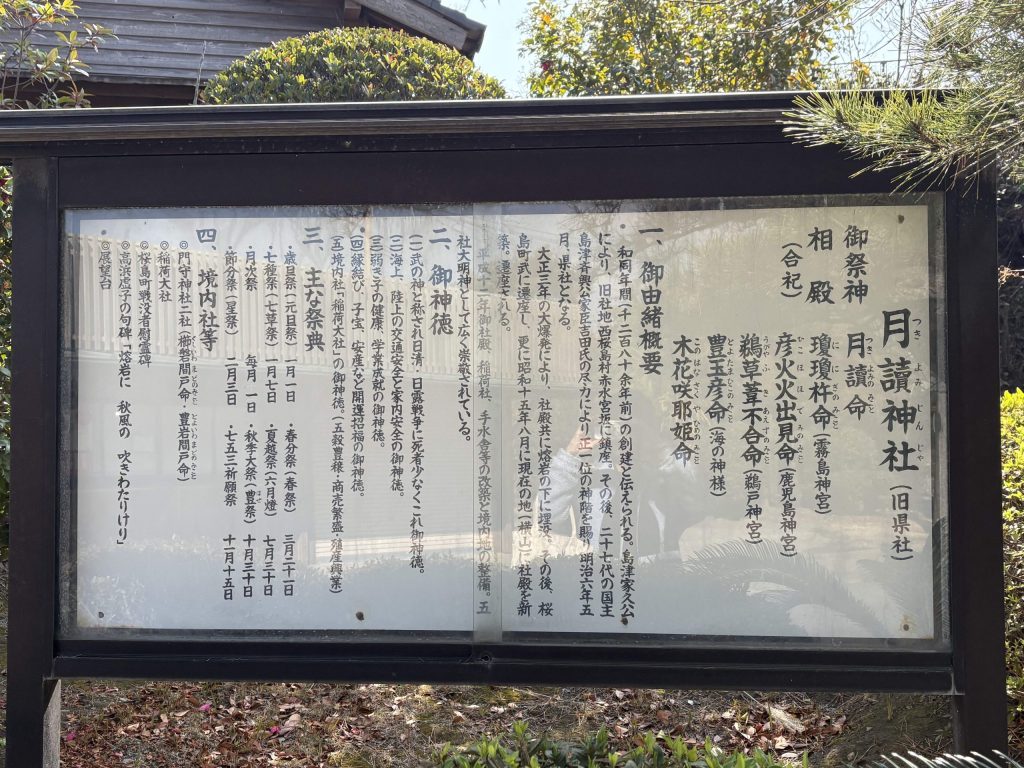 月讀神社(旧県社)
つき よみ じん じゃ
御祭神 月讀命
つき よみの みこと
相殿 瓊瓊杵命(霧島神宮)
に に ぎの みこと
(合祀) 彦火火出見命(鹿児島神宮)
ひこ ほ ほ で みの みこと
鵜草葺不合命(鵜戸神宮)
うがや ふ き あえずの みこと
豊玉彦命(海の神様)
とよ たま ひこの みこと
木花咲耶姫命
この はな さく や ひめの みこと
一、御由緒概要
・和同年間(千二百八十余年前)の創建と伝えられる。島津家久公
により、旧社地西桜島村赤水宮坂に鎮座。その後、二十七代の国主
島津斉興公家臣吉田氏の尽力により正一位の神階を賜り、明治六年五
月、県社となる。
大正三年の大爆発により、社殿共に熔岩の下に埋没、その後、桜
島町武に遷座し、更に昭和十五年八月に現在の地(横山)に社殿を新
築。遷座される。
平成十二年御社殿、稲荷社、手水舎等の改築と境内地の整備。五
社大明神として広く崇敬されている。
二、御神徳
(一)武の神と称され日清・日露戦争に死者少なくこれ御神徳。
(二)海上、陸上の交通安全と家内安全の御神徳。
(三)弱き子の健康、学業成就の御神徳。
(四)縁結び、子宝、安産など開運招福の御神徳。
(五)境内社「稲荷大社」の御神徳。(五穀豊穣・商売繁盛・殖産興業)
三、主な祭典
・歳旦祭(元旦祭)一月一日 ・春分祭(春祭) 三月二十一日
・七種祭(七草祭)一月七日 ・夏越祭(六月燈) 七月三十日
・月次祭 毎月一日 ・秋季大祭(豊祭) 十月三十日
ほぜ
・節分祭(星祭) 二月三日 ・七五三祈願祭 十一月十五日
四、境内社等
◎門守神社二社(櫛磐間戸命・豊岩間戸命)
◎稲荷大社
◎桜島町戦没者慰霊碑
◎高浜虚子の句碑「熔岩に 秋風の 吹きわたりけり」
◎展望台